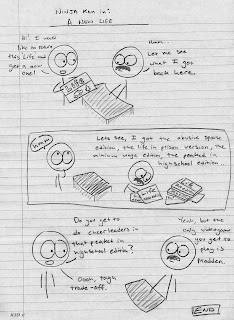 NINJA Ken in:
A NEW LIFE
Hi! I would
like to return
this Life and
get a new
one!
Hmm..
Let me see
what I got
back here.
LIFE
hmm
Lets see, I got the abusive spouse
edition, the life in prison version, the
minimum wage edition, the peaked in
highschool edition..
Do you get to
do cheerleaders in
that peaked in
highschool edition?
Oooh, tough
trade-off.
Yeah, but the
only videogame
you get to
play is
Madden.
END